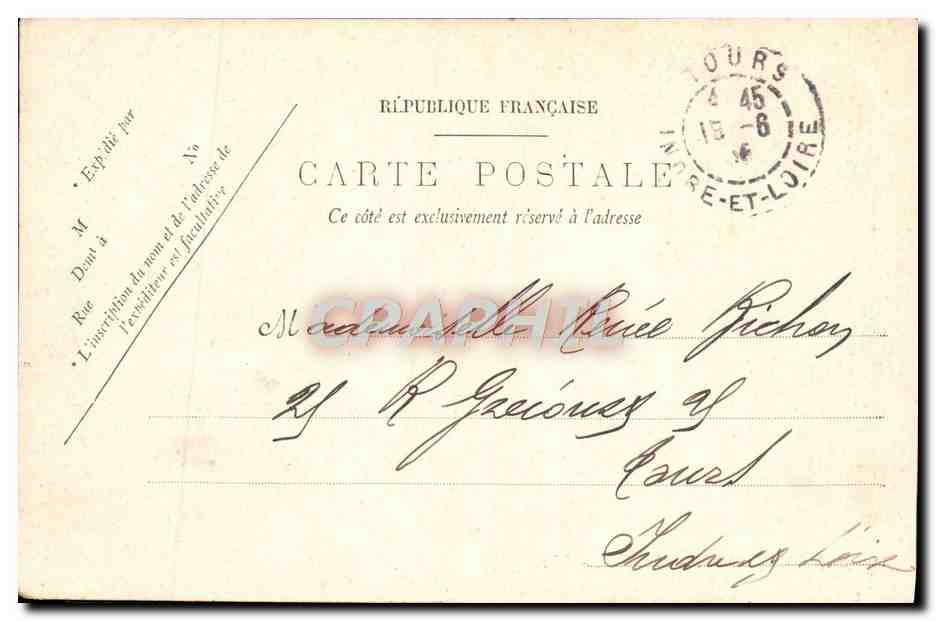 RÉPUBLIQUE FRANÇAISE
CARTE POSTALE
Ce côté est exclusivement réservé à l'adresse
* Expédié par
M
Demt à
Rue No
* L'inscription du nom et de l'adresse de
l'expéditeur est facultative
TOURS
4 45
15 -6
INDRE-ET-LOIRE
CPAPHIL
Mademoiselle Renée Richon
25 R 25
Tours
Indre et Loire